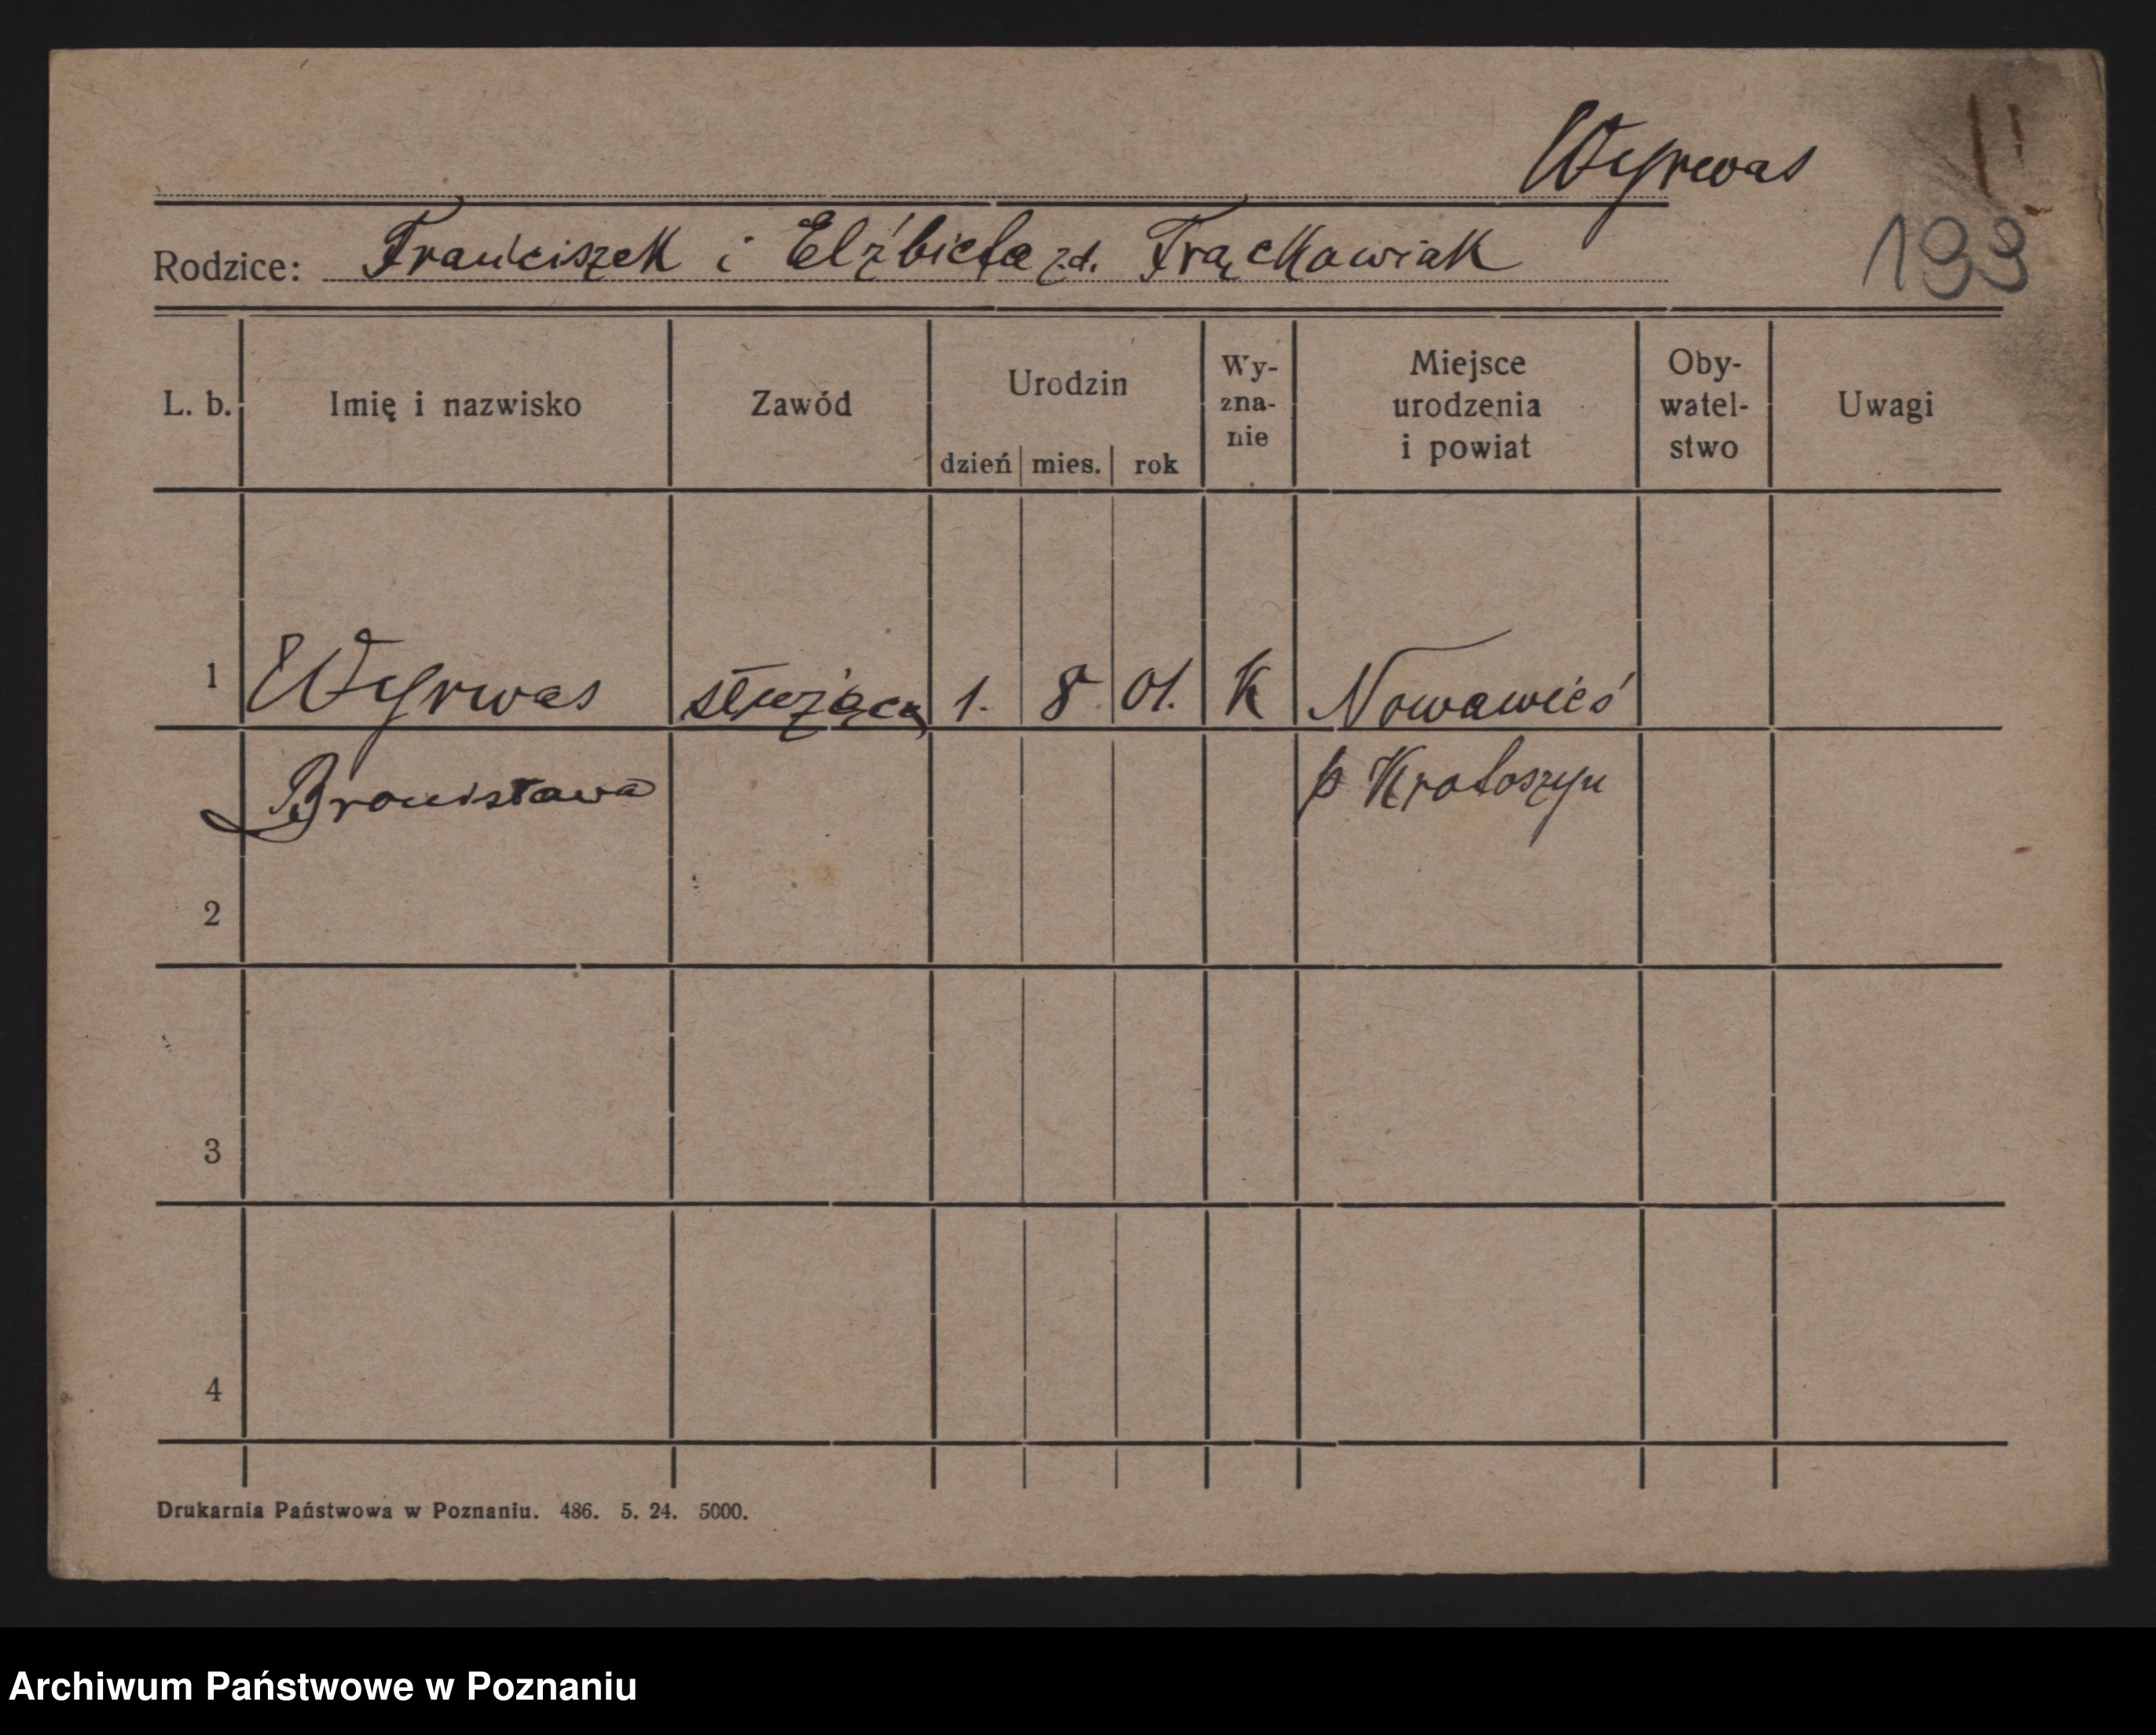 Wyrwas
Rodzice: Franciszek i Elżbieta zd. Frąckowiak
193
L. b. Imię i nazwisko Zawód Urodzin dzień mies. rok Wy-zna-nie Miejsce urodzenia i powiat Oby-watel-stwo Uwagi
1 Wyrwas służąca 1. 8 01. K Nowawieś
Bronisława p Krotoszyn
2
3
4
Drukarnia Państwowa w Poznaniu. 486. 5. 24. 5000.
Archiwum Państwowe w Poznaniu